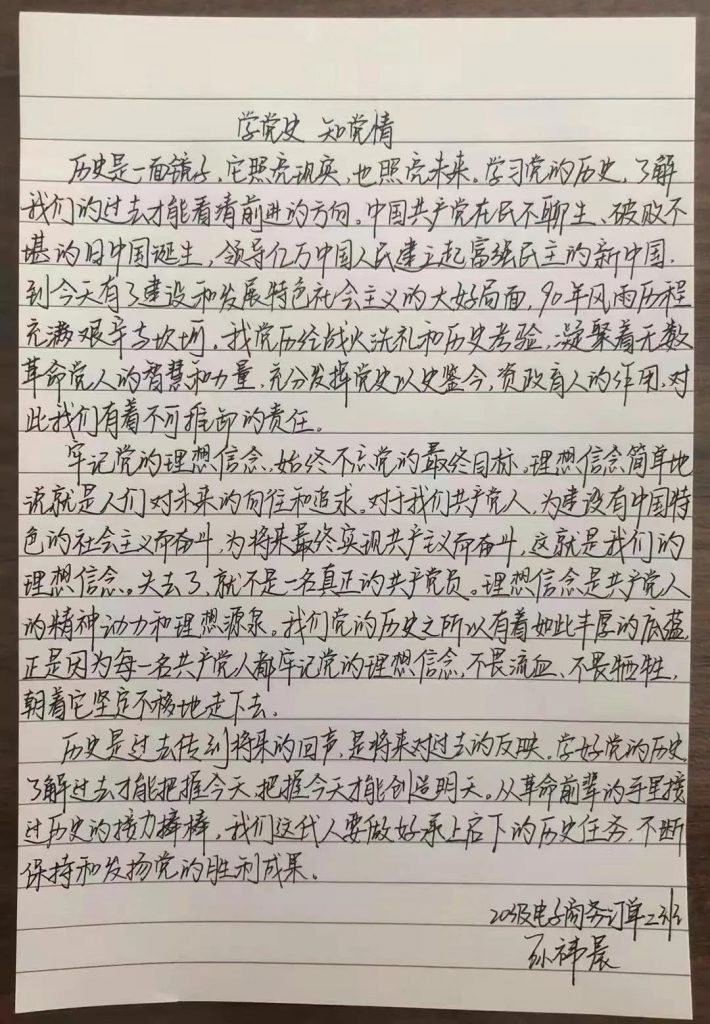 学党史 知党情
历史是一面镜子,它照亮现实,也照亮未来。学习党的历史,了解
我们的过去才能看清前进的方向。中国共产党在民不聊生、破败不
堪的旧中国诞生,领导亿万中国人民建立起富强民主的新中国.
到今天有了建设和发展特色社会主义的大好局面,90年风雨历程
充满艰辛与坎坷,我党历经战火洗礼和历史考验,凝聚着无数
革命党人的智慧和力量,充分发挥党史以史鉴今,资政育人的作用,对
此我们有着不可推卸的责任。
牢记党的理想信念,始终不忘党的最终目标。理想信念简单地
说就是人们对未来的向往和追求。对于我们共产党人,为建设有中国特
色的社会主义而奋斗,为将来最终实现共产主义而奋斗,这就是我们的
理想信念。失去了,就不是一名真正的共产党员。理想信念是共产党人
的精神动力和理想源泉。我们党的历史之所以有着如此丰厚的底蕴,
正是因为每一名共产党人都牢记党的理想信念,不畏流血、不畏牺牲,
朝着它坚定不移地走下去.
历史是过去传到将来的回声,是将来对过去的反映。学好党的历史,
了解过去才能把握今天,把握今天才能创造明天。从革命前辈的手里接
过历史的接力捧棒,我们这代人要做好承上启下的历史任务,不断
保持和发扬党的胜利成果。
20级电子商务订单二班
孙祎晨